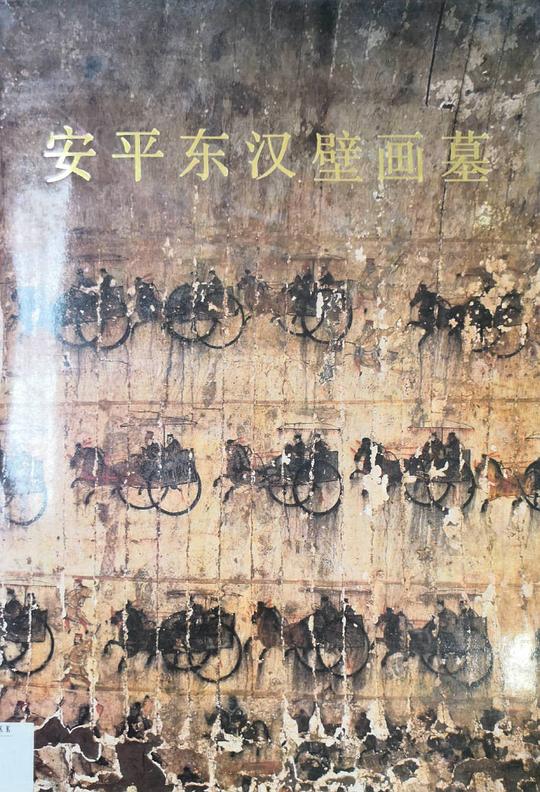 安平东汉壁画墓